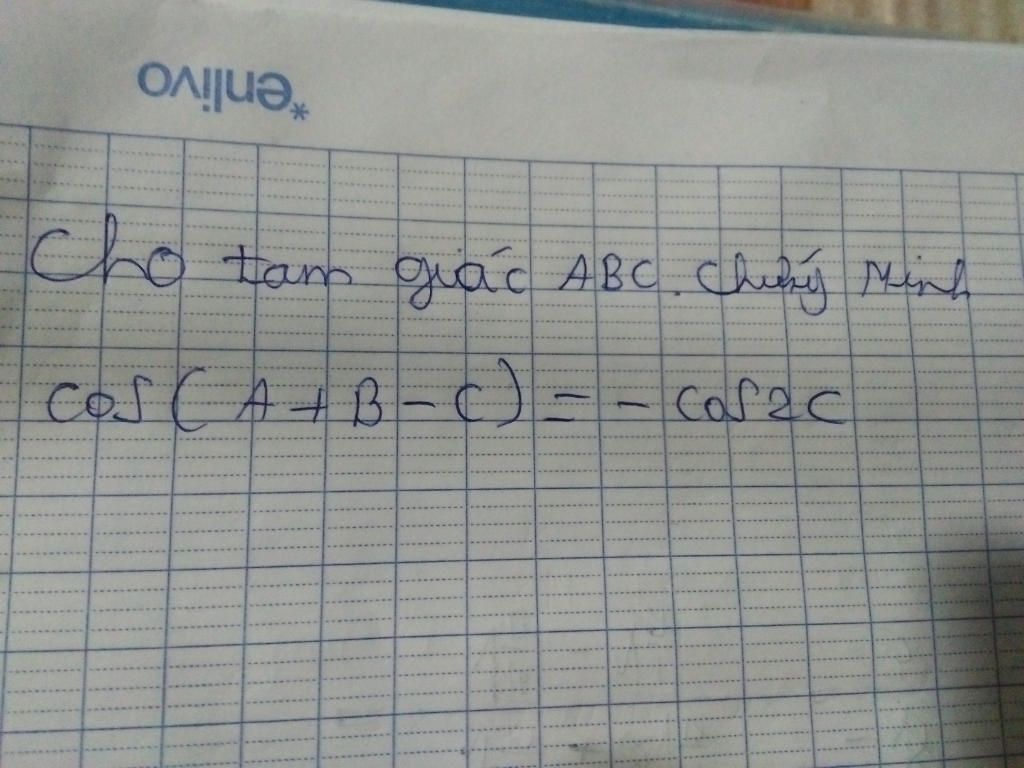 *enlivo
Cho tam giác ABC. Chứng Minh
cos(A+B-C) = - cos2C